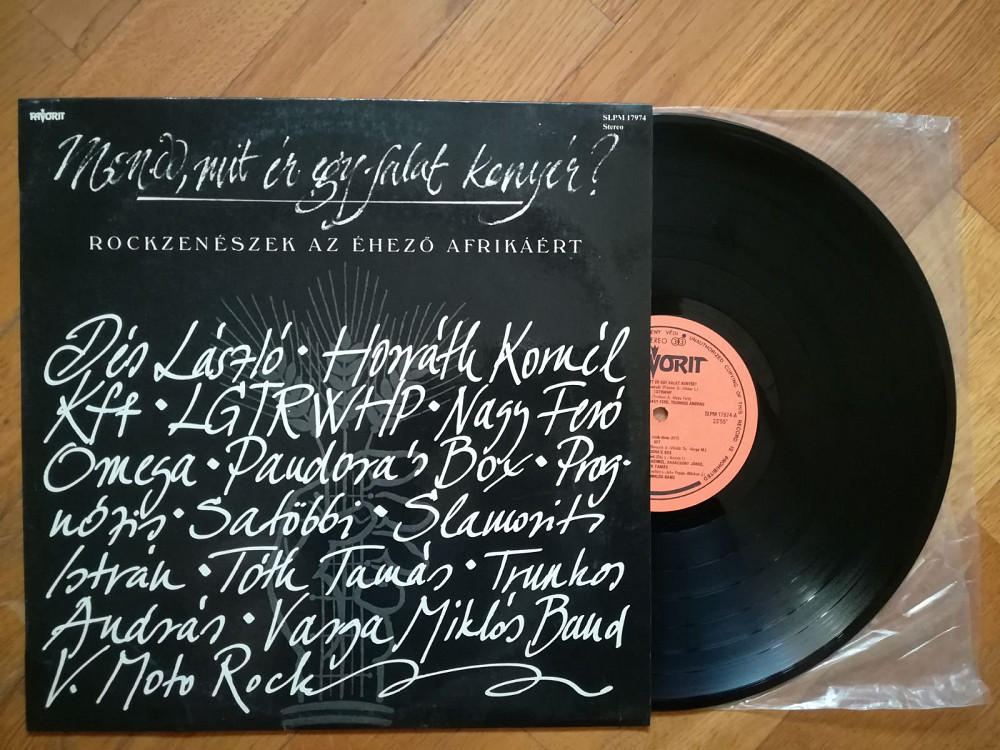 FAVORIT
SLPM 17974
Stereo
Mondd, mit ér egy falat kenyér?
ROCKZENÉSZEK AZ ÉHEZŐ AFRIKÁÉRT
Dés László • Horváth Kornél
Kft • LGTRWHP • Nagy Feró
Omega • Pandora's Box • Prog-
nózis • Satöbbi • Slamovits
István • Tóth Tamás • Trunkos
András • Varga Miklós Band
V. Moto Rock
STEREO 33
UNAUTHORIZED COPYING OF THIS RECORD IS PROHIBITED
VORIT
SLPM 17974 A